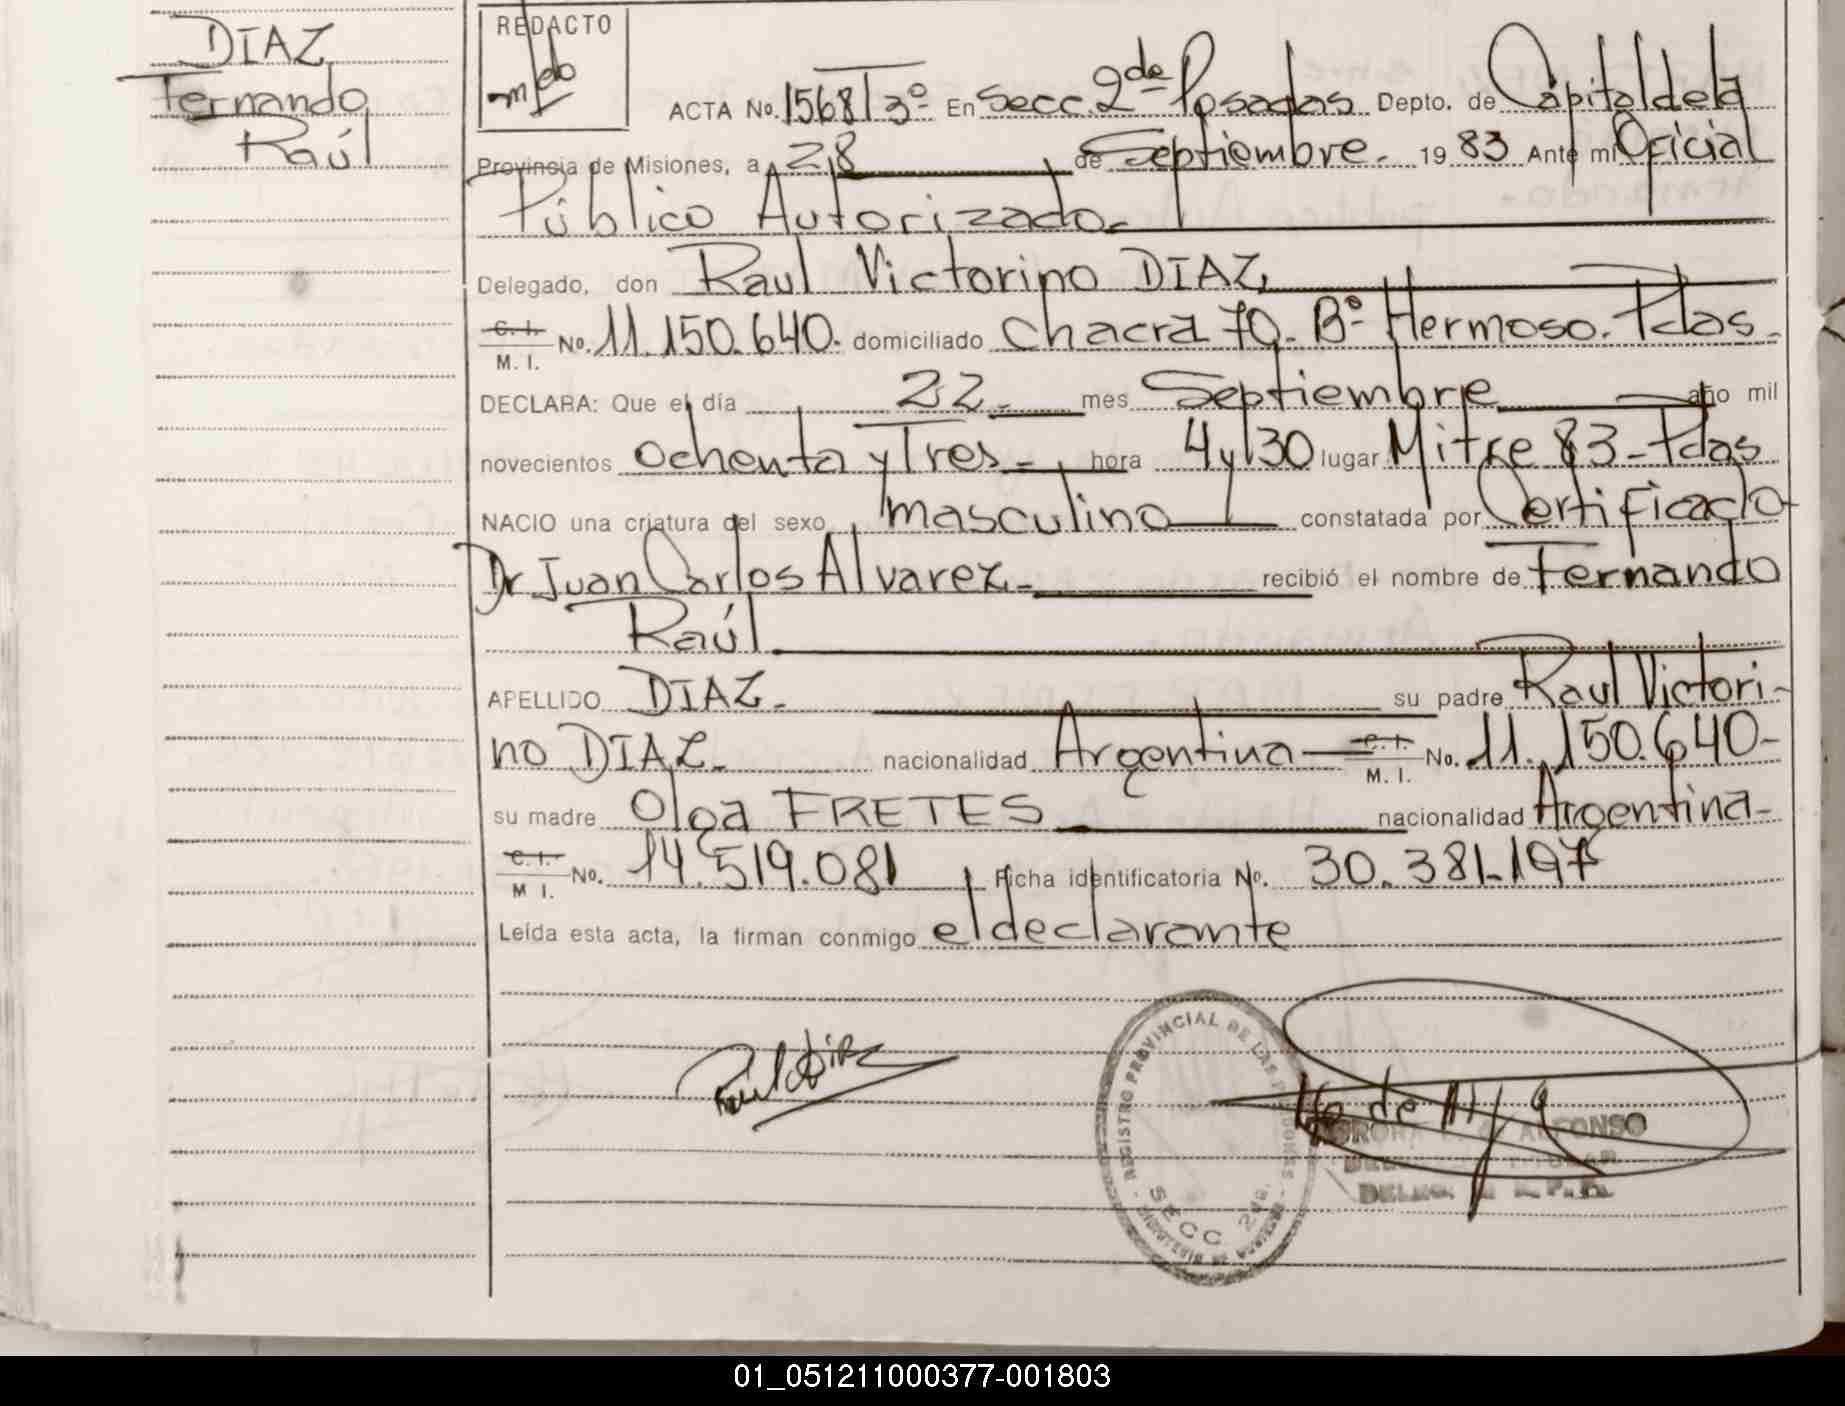 DIAZ
Fernando
Raúl
REDACTO
ACTA No. 1568 T 3º En Secc. 2da Posadas Depto. de Capital de la
Provincia de Misiones, a 28 de Septiembre. 1983 Ante mi Oficial
Público Autorizado.
Delegado, don Raul Victorino DIAZ
C. I.
M. I. No. 11.150.640. domiciliado Chacra 70. Bº Hermoso. Pdas.
DECLARA: Que el día 22 mes Septiembre año mil
novecientos ochenta y Tres hora 4 y 30 lugar Mitre 83 - Pdas
NACIO una criatura del sexo masculino constatada por Certificado
Dr Juan Carlos Alvarez. recibió el nombre de Fernando
Raúl
APELLIDO DIAZ. su padre Raul Victori-
no DIAZ. nacionalidad Argentina C. I.
M. I. No. 11.150.640-
su madre Olga FRETES nacionalidad Argentina-
C. I.
M. I. No. 14.519.081 Ficha identificatoria No. 30.381.197
Leída esta acta, la firman conmigo el declarante
Raul Diaz
REGISTRO PROVINCIAL DE LAS PERSONAS
SECC 2da.
ALFONSO
01_051211000377-001803